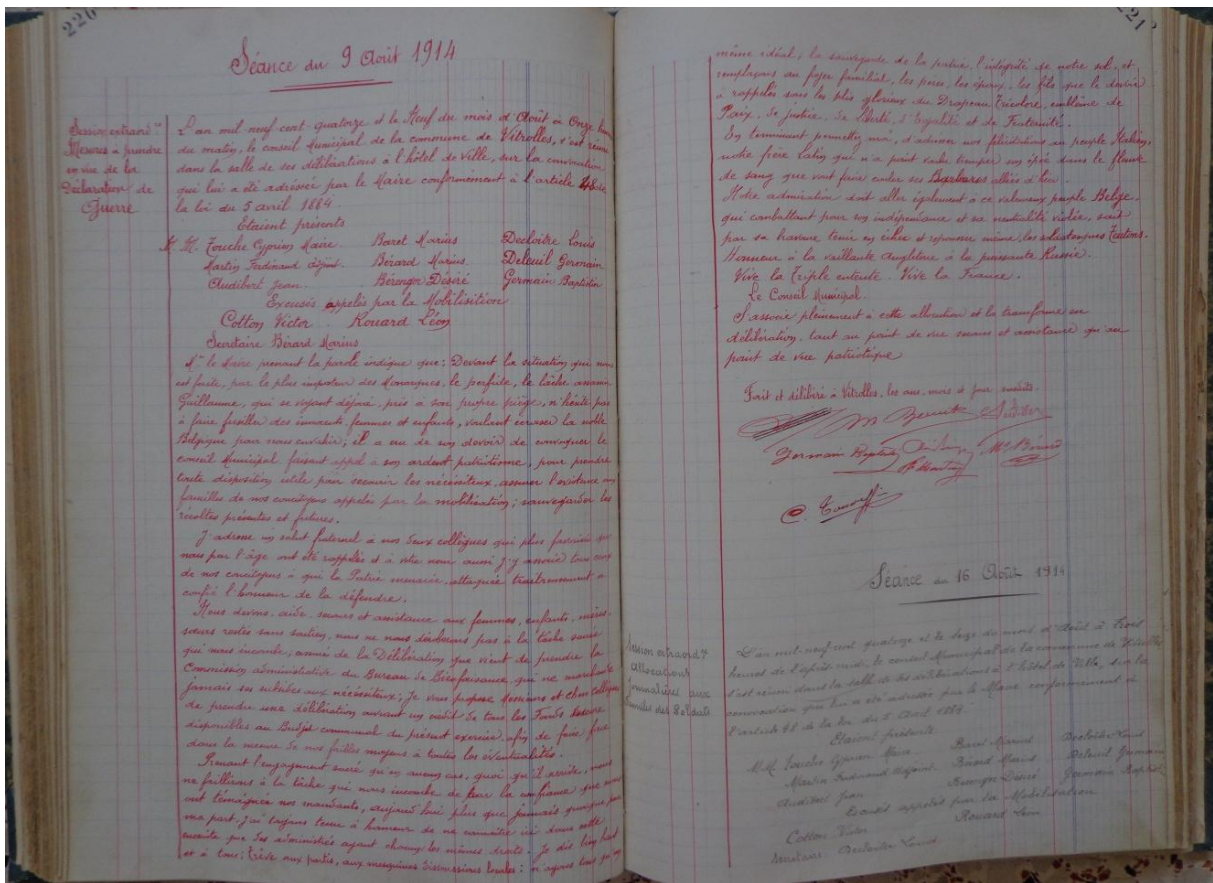 226
Séance du 9 Août 1914
Session extraord re
Mesures à prendre
en vue de la
Déclaration de
Guerre
L'an mil neuf cent quatorze et le Neuf du mois d'Août à Onze heures
du matin, le conseil Municipal de la commune de Vitrolles, s'est réuni
dans la salle de ses délibérations à l'hôtel de Ville, sur la convocation
qui lui a été adressée par le Maire conformément à l'article 48 de
la loi du 5 avril 1884.
Etaient présents
M. M. Touche Cyprien Maire Barel Marius Decloître Louis
Martin Ferdinand adjoint. Bérard Marius Deleuil Germain
Audibert Jean. Béranger Désiré Germain Baptistin
Excusés appelés par la Mobilisation
Cotton Victor. Rouard Léon
Secrétaire Bérard Marius
Mr le Maire prenant la parole indique que: Devant la situation qui nous
est faite, par le plus imposteur des Monarques, le perfide, le lâche assassin
Guillaume, qui se voyant déjoué, pris à son propre piège, n'hésite pas
à faire fusiller des innocents, femmes et enfants, voulant écraser la noble
Belgique pour nous envahir; il a cru de son devoir de convoquer le
conseil Municipal faisant appel à son ardent patriotisme, pour prendre
toute disposition utile pour secourir les nécessiteux, assurer l'existence aux
familles de nos concitoyens appelés par la mobilisation; sauvegarder les
récoltes présentes et futures.
J'adresse un salut fraternel à nos deux collègues qui plus favorisés que
nous par l'âge ont été rappelés et à votre nom aussi j'y associe tous ceux
de nos concitoyens à qui la Patrie menacée, attaquée traitreusement a
confié l'honneur de la défendre.
Nous devons, aide, secours et assistance aux femmes, enfants, mères,
sœurs restés sans soutien, nous ne nous déroberons pas à la tâche sacrée
qui nous incombe; armé de la Délibération que vient de prendre la
Commission administrative du Bureau de Bienfaisance, qui ne marchande
jamais ses subsides aux nécessiteux; Je vous propose Messieurs et chers collègues
de prendre une délibération ouvrant un crédit de tous les Fonds encore
disponibles au Budget communal du présent exercice, afin de faire face
dans la mesure de nos faibles moyens à toutes les éventualités.
Prenant l'engagement sacré qu'en aucun cas, quoi qu'il arrive, nous
ne faillirons à la tâche qui nous incombe de par la confiance que nous
ont témoignée nos mandants, aujourd'hui plus que jamais quoique pour
ma part, j'ai toujours tenu à honneur de ne connaître ici dans cette
enceinte que des administrés ayant chacun les mêmes droits. Je dis bien haut
et à tous; Trève aux partis, aux mesquines discussions locales: n'ayons tous qu'un
221
même idéal, la sauvegarde de la patrie, l'intégrité de notre sol, et
remplaçons au foyer familial, les pères, les époux, les fils que le devoir
a rappelés sous les plis glorieux du Drapeau Tricolore, emblême de
Paix, de justice, de Liberté, d'Egalité et de Fraternité.
En terminant permettez moi, d'adresser nos félicitations au peuple Italien,
notre frère Latin qui n'a point voulu tremper son épée dans le fleuve
de sang que vont faire couler ses Barbares alliés d'hier.
Notre admiration doit aller également à ce valeureux peuple Belge,
qui combattant pour son indépendance et sa neutralité violée, sait
par sa bravoure tenir en échec et repousser même, les Teutons.
Honneur à la vaillante Angleterre à la puissante Russie.
Vive la Triple entente. Vive la France.
Le Conseil Municipal.
S'associe pleinement à cette allocution et la transforme en
délibération, tant au point de vue secours et assistance qu'au
point de vue patriotique
Fait et délibéré à Vitrolles, les ans, mois et jour susdits.
Germain Baptistin
M. Bérard
Séance du 16 Août 1914
Session extraord re
Allocations
Journalières aux
Familles des Soldats
L'an mil neuf cent quatorze et le Seize du mois d'Août à Trois
heures de l'après midi, le conseil Municipal de la commune de Vitrolles
s'est réuni dans la salle de ses délibérations à l'hôtel de Ville, sur la
convocation qui lui a été adressée par le Maire conformément à
l'article 48 de la loi du 5 Avril 1884.
Etaient présents
M.M. Touche Cyprien Maire Barel Marius Decloître Louis
Martin Ferdinand adjoint Bérard Marius Deleuil Germain
Audibert Jean Béranger Désiré Germain Baptistin
Excusés appelés par la Mobilisation
Cotton Victor Rouard Léon
Secrétaire Decloître Louis